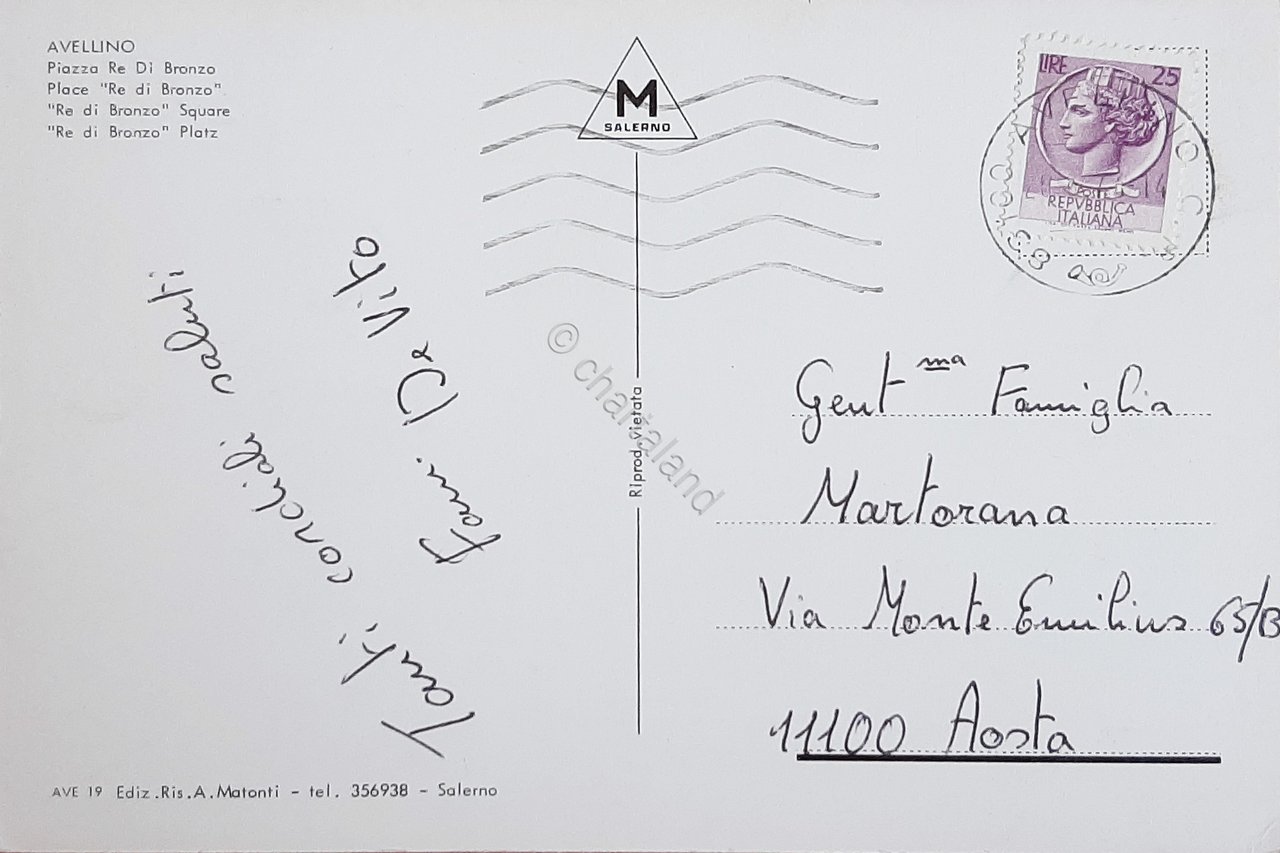 AVELLINO
Piazza Re Di Bronzo
Place "Re di Bronzo"
"Re di Bronzo" Square
"Re di Bronzo" Platz
M
SALERNO
LIRE 25
POSTE
REPVBBLICA
ITALIANA
Tanti cordiali saluti
Fam. De Vito
© chartaland
Riprod. Vietata
Gent ma Famiglia
Martorana
Via Monte Emilius 65/B
11100 Aosta
AVE 19 Ediz.Ris.A.Matonti - tel. 356938 - Salerno